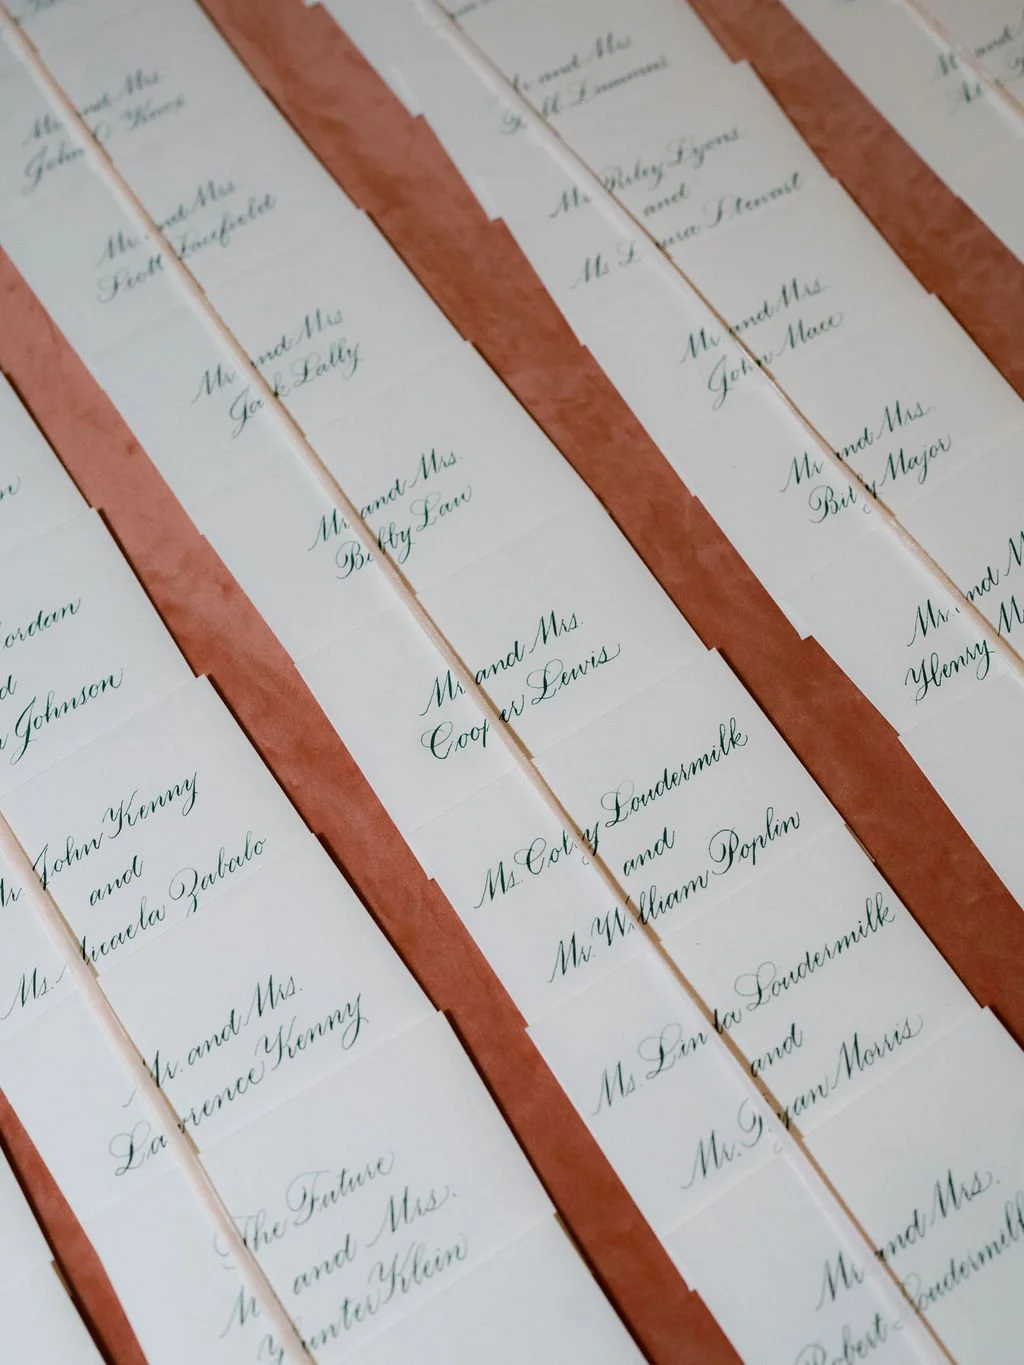 Mr. and Mrs
John C Knox
Mr. and Mrs
Scott Lacefield
Mr and Mrs
Jack Lally
Mr and Mrs.
Bobby Law
Mr and Mrs.
Cooper Lewis
Ms Colby Loudermilk
and
Mr. William Poplin
Ms. Linda Loudermilk
and
Mr. Ryan Morris
Mr and Mrs.
Robert Loudermilk
Mr and Mrs
Mr Riley Lyons
and
Ms Laura Stewart
Mr and Mrs.
John Mace
Mr and Mrs.
Billy Major
Mr. and M
Henry M
M and
Jordan
Johnson
Mr. John Kenny
and
Ms. Micaela Zabalo
Mr. and Mrs.
Lawrence Kenny
The Future
Mr and Mrs.
Hunter Klein